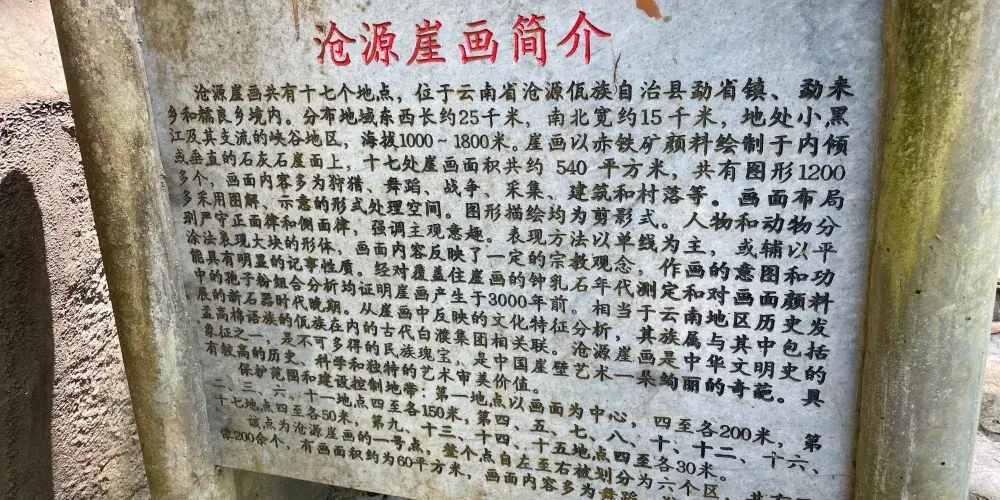 沧源崖画简介
沧源崖画共有十七个地点，位于云南省沧源佤族自治县勐省镇、勐来
乡和糯良乡境内。分布地域东西长约25千米，南北宽约15千米，地处小黑
江及其支流的峡谷地区，海拔1000～1800米。崖画以赤铁矿颜料绘制于内倾
或垂直的石灰石崖面上，十七处崖画面积共约 540 平方米，共有图形1200
多个，画面内容多为狩猎、舞蹈、战争、采集、建筑和村落等。画面布局
多采用图解、示意的形式处理空间。图形描绘均为剪影式。人物和动物分
别严守正面律和侧面律，强调主观意趣。表现方法以单线为主，或辅以平
涂法表现大块的形体，画面内容反映了一定的宗教观念，作画的意图和功
能具有明显的记事性质。经对覆盖住崖画的钟乳石年代测定和对画面颜料
中的孢子粉组合分析均证明崖画产生于3000年前。相当于云南地区历史发
展的新石器时代晚期。从崖画中反映的文化特征分析，其族属与其中包括
孟高棉语族的佤族在内的古代白濮集团相关联。沧源崖画是中华文明史的
象征之一，是不可多得的民族瑰宝，是中国崖壁艺术一朵绚丽的奇葩。具
有较高的历史、科学和独特的艺术审美价值。
保护范围和建设控制地带：第一地点以画面为中心，四至各200米，第
二、三、六、十一地点四至各150米，第四、五、七、八、十、十二、十六、
十七地点四至各50米，第九、十三、十四、十五地点四至各30米。
该点为沧源崖画的一号点，整个点自左至右被划分为六个区，共有
像200余个，有画面积约为60平方米，画面内容多为舞蹈